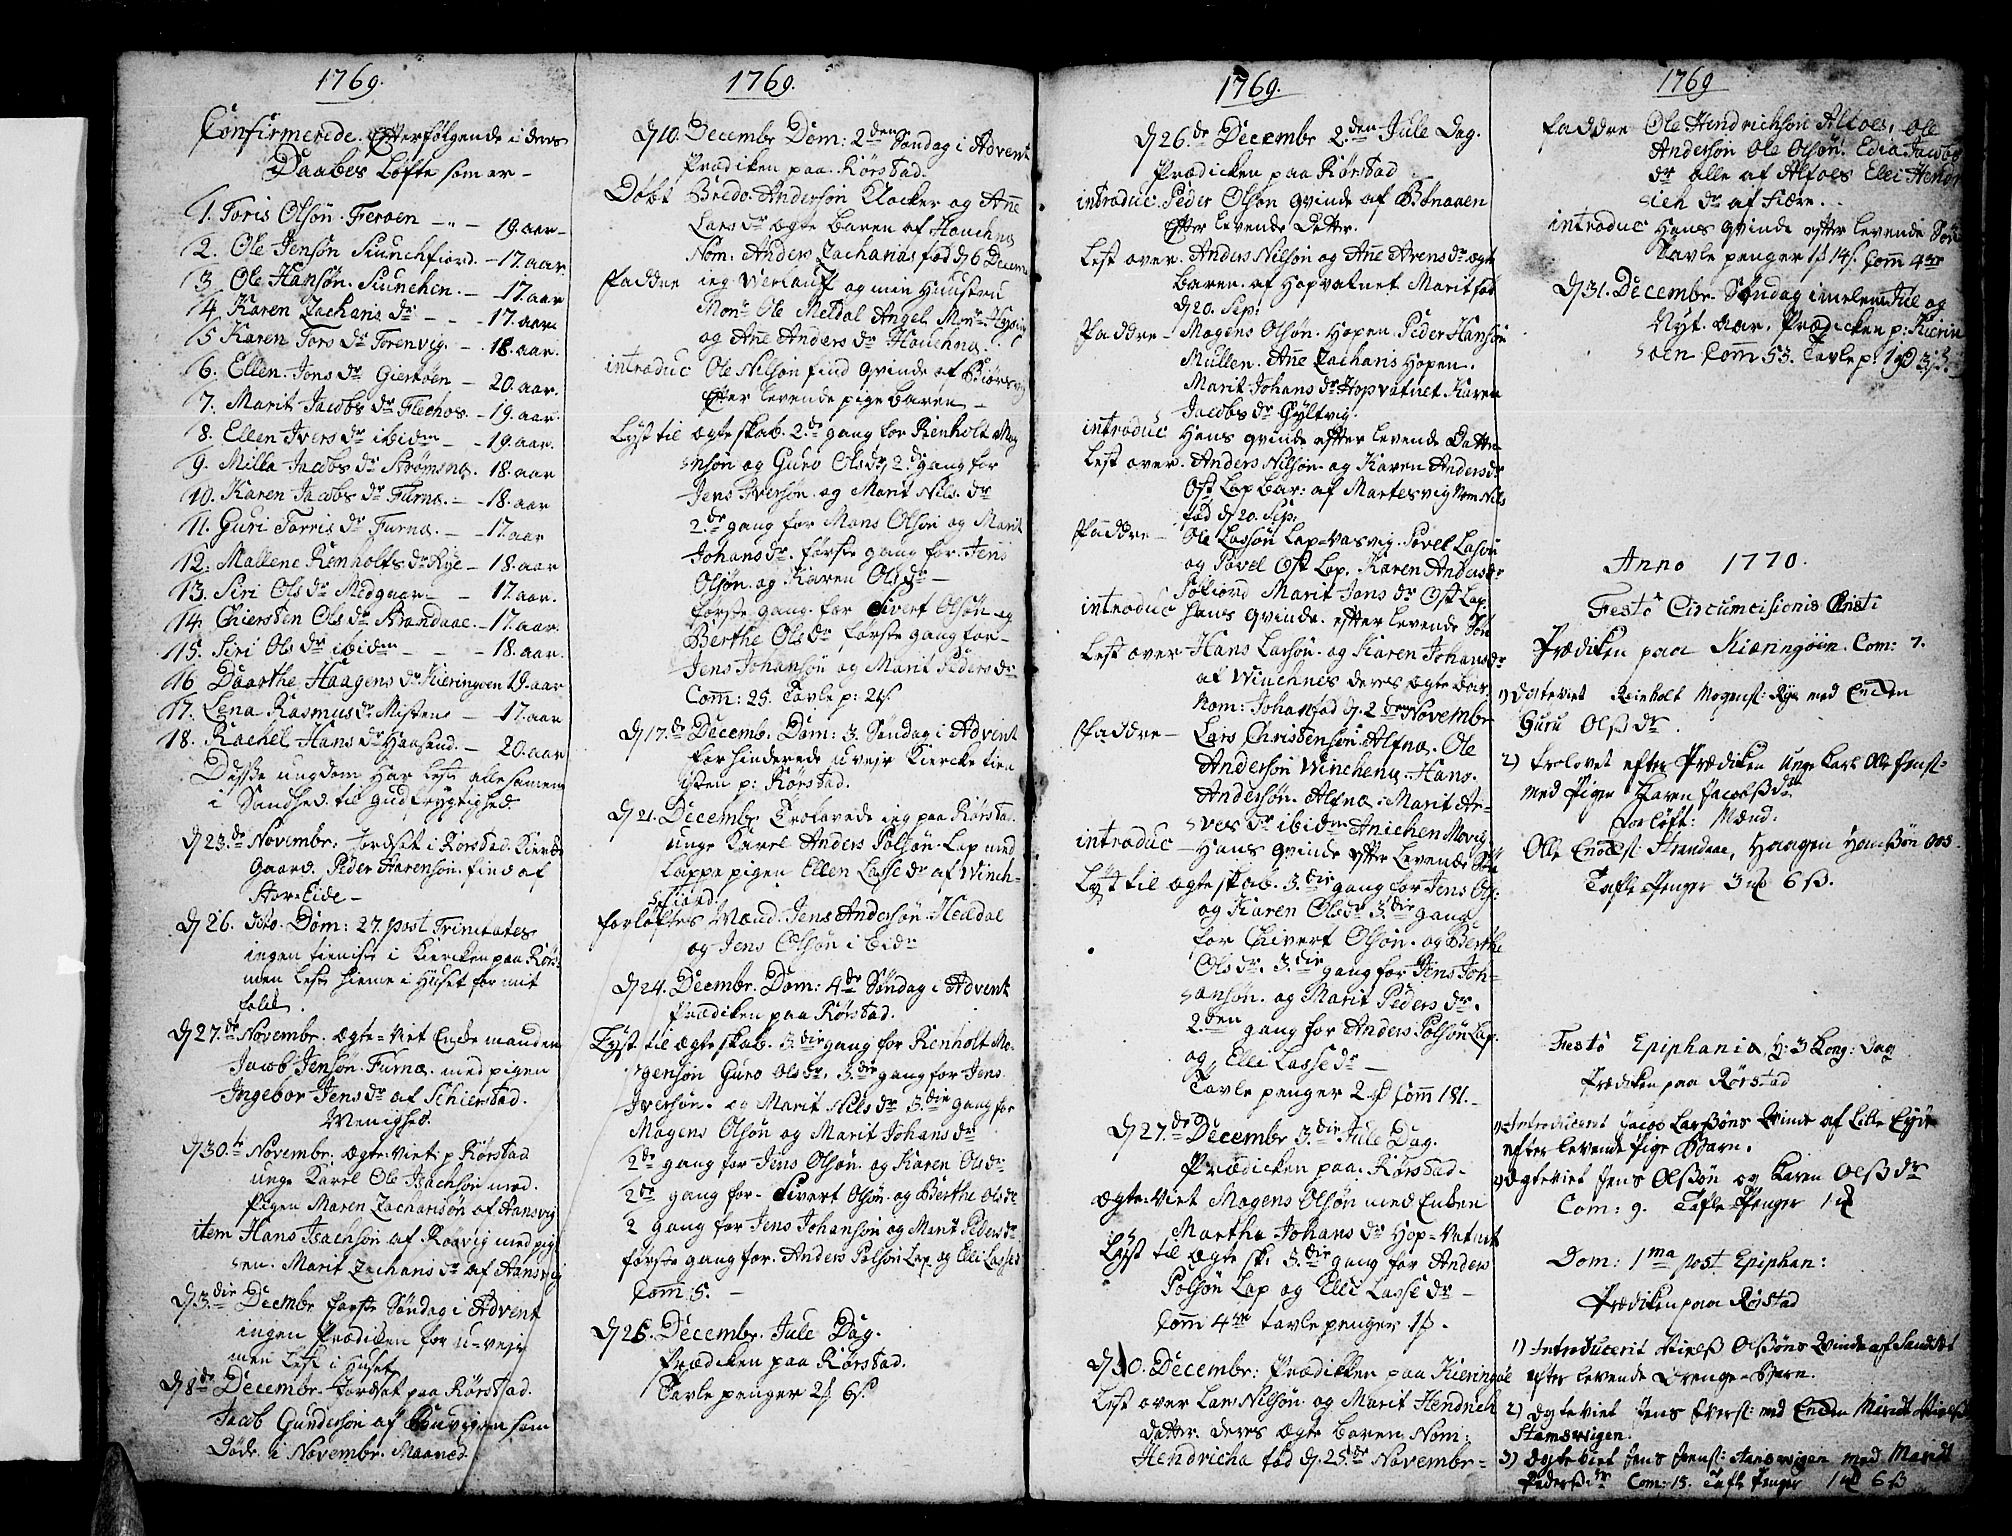 1769.
Confirmerede Efterfølgende i deres
Daabes Løfte som er -
1. Toris Olsön Feroen - 19 aar -
2. Ole Jensön Siunchfiord. - 17. aar
3. Ole Hansön Siunchen. - 17. aar
4. Karen Zachariæ dr - - 17. aar.
5 Karen Tors dr Torenvig. - 18. aar.
6. Ellen Jons dr Giertöen - 20. aar.
7. Marit Jacobs dr Flechos. - 19. aar.
8. Ellen Ivers dr ibidm - - 19. aar.
9. Milla Jacobs dr Strömsnæs. 18. aar
10. Karen Jacobs dr Furnæ. - 18. aar
11. Guri Torris dr Furnæ. - 17. aar
12. Mallene Renholts dr Rye - 18. aar
13. Siri Ols dr Medgaar - 17. aar.
14. Chiersten Ols dr Strandaae. - 17. aar.
15. Siri Ols dr ibidm - - 18. aar.
16. Daarthe Haagens dr Kieringoen 19. aar
17. Lena Rasmus dr Mistene - 17. aar
18. Rachel Hans dr Haasand. - 20. aar
Disse ungdom har lest alle samen
i Sandhed til gudfrygtighed
d 23. de Novembr: Jordsat i Rörstad Kierke
Gaard. Peder Aarensön. find af
Storeeide -
d 26. dito. Dom: 27. post Trinitates
ingen tieniste i Kiercken paa Rörs
men leste hieme i Huset for mit
folck.
d 27. de Novembr. ægte-Viet Enckemanden
Jacob Jensön Furnæ. med pigen
Ingebor Jens dr af Schierstad.
Menighed.
d 30. te Novembr. ægte-Viet p Rörstad
unge Karel Ole Isachsön med
Pigen Maren Zacharisön af Aansvig
item Hans Isachsön af Röövig med pige
en. Marit Zachariæ dr af Aansvig
d 3. die Decembr förste Söndag i Advent
ingen Prædicken for u-vejr
men lest i Huset
d 8. de Decembr. Jordsat paa Rörstad.
Jacob Gundersön af Buvigen som
döde i Novembr. Maaned.
1769.
d 10. Decembr Dom: 2 den Söndag i Advent
Prædicken paa Rörstad.
Döbt Bredo Andersön Klocker og Añe
Lars dr ægte Baren af Houchnæs
Nom: Anders Zacharias fød d 6 Decem
Faddre ieg Werlauff og min Huustru
Monr Ole Meldal Angel Monr
og Añe Anders dr Houchnæ.
introduc Ole Nilsön find qvinde af Biörsvig
Efter levende pige baren -
Lyst til ægteskab. 2. de gang for Renholt Mog
ensön og Guro Ols dr, 2. de gang for
Jens Iversön og Marit Nils dr
2. de gang for Mons Olsön og Marit
Johans dr. förste gang for Jens
Olsön og Karen Ols dr -
förste gang for Sivert Olsön og
Berthe Ols dr förste gang for -
Jens Johansön og Marit Peders dr
Com̃: 25. Tavle p: 2
d 17. de Decemb: Dom: 3. Söndag i Advent
forhinderede u-vejr Kiercke tien
isten p: Rörstad.
d 21. Decembr Trolovede ieg paa Rörstad.
unge Karel Anders Polsön Lap med
Lappe pigen Ellen Lasse dr af Winch-
fiord.
forlöftes Mænd Jens Andersön Heldal
og Jens Olsön i Eide
d 24. Decembr. Dom: 4. de Söndag i Advent
Prædicken paa Rörstad.
Lyst til ægteskab. 3. die gang for Renholt Mo-
gensön Guro Ols dr. 3. die gang for Jens
Iversön. og Marit Nils dr 3. die gang for
Mogens Olsön og Marit Johans dr
2 de gang for Jens Olsön og Karen Ols dr
2 de gang for Sivert Olsön og Berthe Ols dr
2 gang for Jens Johansön og Marit Peders dr
förste gang for Anders Polsön Lap og Elli Lasse dr
Com̃: 5. -
d 25. Decembr. Jule Dag.
Prædicken paa Rörstad.
Tavle penger 2 6
1769.
d 26. de Decembr 2. den Jule Dag.
Prædicken paa Rörstad
introduc. Peder Olsen qvinde af Bönaaen
Efter levende Datter.
Lest over Anders Nilsön og Añe Arens dr ægte
Baren af Hopvatnet Marit fød
d 20. Sep:
Faddre - Mogens Olsön. Hopen. Peder Hansön
Mullen. Añe Zachariæ Hopen.
Marit Johans dr Hopvatnet Karen
Jacobs dr Gyltvig.
introduc Hans qvinde efter levende Datter
Lest over. Anders Nilsön og Karen Anders dr
Öst Lap bar: af Martesvig Nom Nils
fød d 20. Sep:
Faddre - Ole Lassön Lap Vasvig Povel Lasön
og Povel Öst Lap. Karen Anders dr
Söfiord Marit Jons dr Öst Lap.
introduc Hans qvinde efter levende Sön
Lest over Hans Larsön og Karen Johans dr
af Winchnes deres ægte bar:
Nom: Johan fød d. 2 den Novembr
Faddre - Lars Christensön Alfnæ. Ole
Andersön Winchenæ. Hans
Andersön. Alfnæ. Marit Ar-
ves dr ibidm Anichen Movig
introduc - Hans qvinde efter levende Sön
Lyst til ægteskab. 3. die gang for Jens Ols:
og Karen Ols dr 3. die gang
for Chivert Olsön og Berthe
Ols dr. 3. die gang for Jens Joh-
ansön og Marit Peders dr.
2. den gang for Anders Polsön Lap.
og Elli Lasse dr -
Tavle penger 2 Com̃ 181.
d 27. de Decembr 3. die Jule Dag.
Prædicken paa Rörstad.
ægte-Viet Mogens Olsön med Encken
Martha Johans dr Hop-Vatnet
Lyst til ægtesk: 3. die gang for Anders
Polsön Lap og Elli Lasse dr -
Com̃ 4 re tavle penger 1
d 30. Decembr: Prædicken paa Kieringöe
Lest over Lar Nilsön og Marit Hendrich
datter. deres ægte baren Nom:
Hendricha fød d. 25. de Novembr -
1769
Faddre Ole Hendrichsön Alfoes. Ole
Andersön Ole Olsön. Edia Jacobs
dr alle af Alfoes Elli Hendr
ich dr af Fiære.
introduc Hans qvinde efter levende Sön
Tavle penger 1 14 Com̃ 4 re
d 31. Decembr. Söndag imelem Jul og
Nyt aar. Prædicken p: Kierin
göen Com̃ 53. Tavle p: 1
Anno 1770.
Festo Circumcisionis Christi
Prædiken paa Kieringöen. Com: 7.
1) Egteviet Reinholt Mogensl: Rye med Enken
Guru Olß dr.
2) Trolovet efter Prædiken unge Karl Olle Jensl:
med Pigen Karen Jacobß dr
Forløft: Mænd.
Olle Endresl: Strandaae, Haagen Hanßön
Tafle Penger 3 6 ß.
Festo Epiphaniæ H: 3 Kong: Dag
Prædiken paa Rørstad
1) Introducert Jacob Larßöns Qvinde af Lille Eyde
efter levende Pige Barn.
2) Egteviet Jens Olßön og Karen Olß dr
Com: 9. Tafle Penger 1
Dom: 1 ma post Epiphan:
Prædiken paa Rørstad
1) Introducerit Nielß Olßöns Qvinde af Sandset
efter levende Drenge-Barn.
2) Egteviet Jens Iversl: med Enken Maridt Nielß
Stamsvigen.
3) Egteviet Jens Jensl: Aansvigen med Maridt
Pederß dr Com: 15. Tafle Penger 1 6 ß